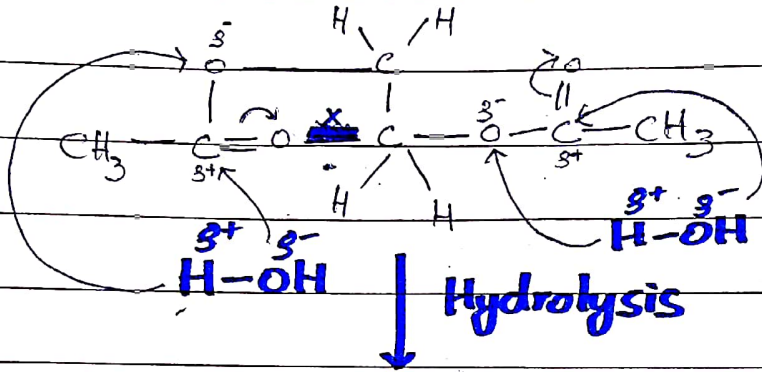 δ- H H
O C O
CH3 C O x C O C CH3
δ+ δ- δ+
H H
δ+ δ- δ+ δ-
H-OH H-OH
Hydrolysis